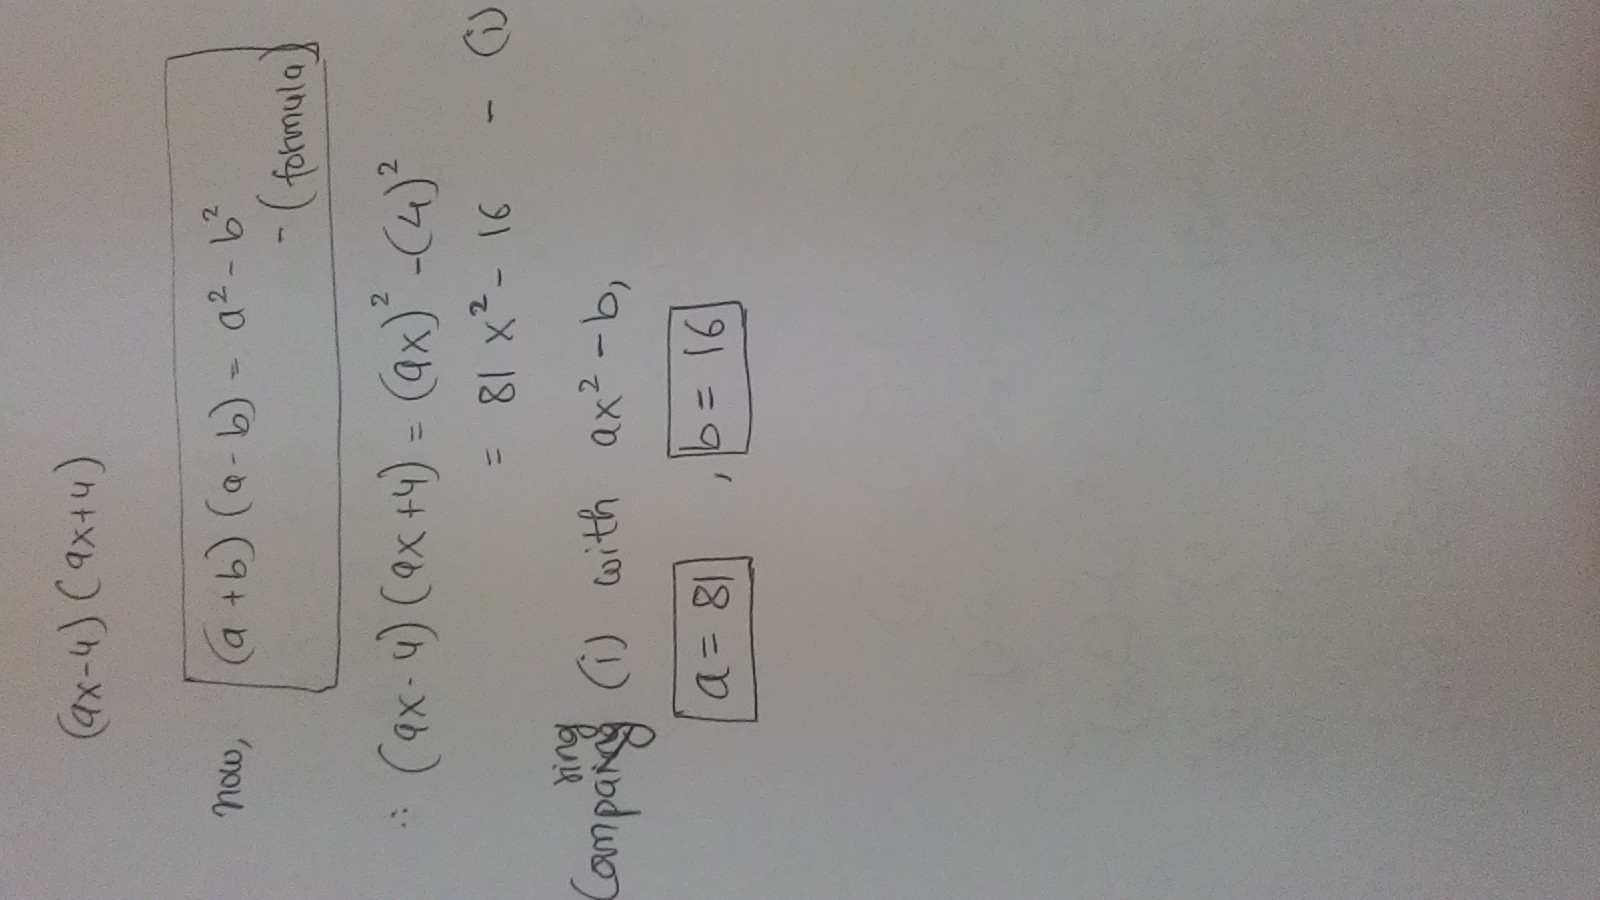 (9x-4)(9x+4)
now, (a+b)(a-b) = a² - b²
- (formula)
∴ (9x-4)(9x+4) = (9x)² - (4)²
= 81x² - 16 - (i)
ring
Comparing (i) with ax² - b,
a = 81 , b = 16